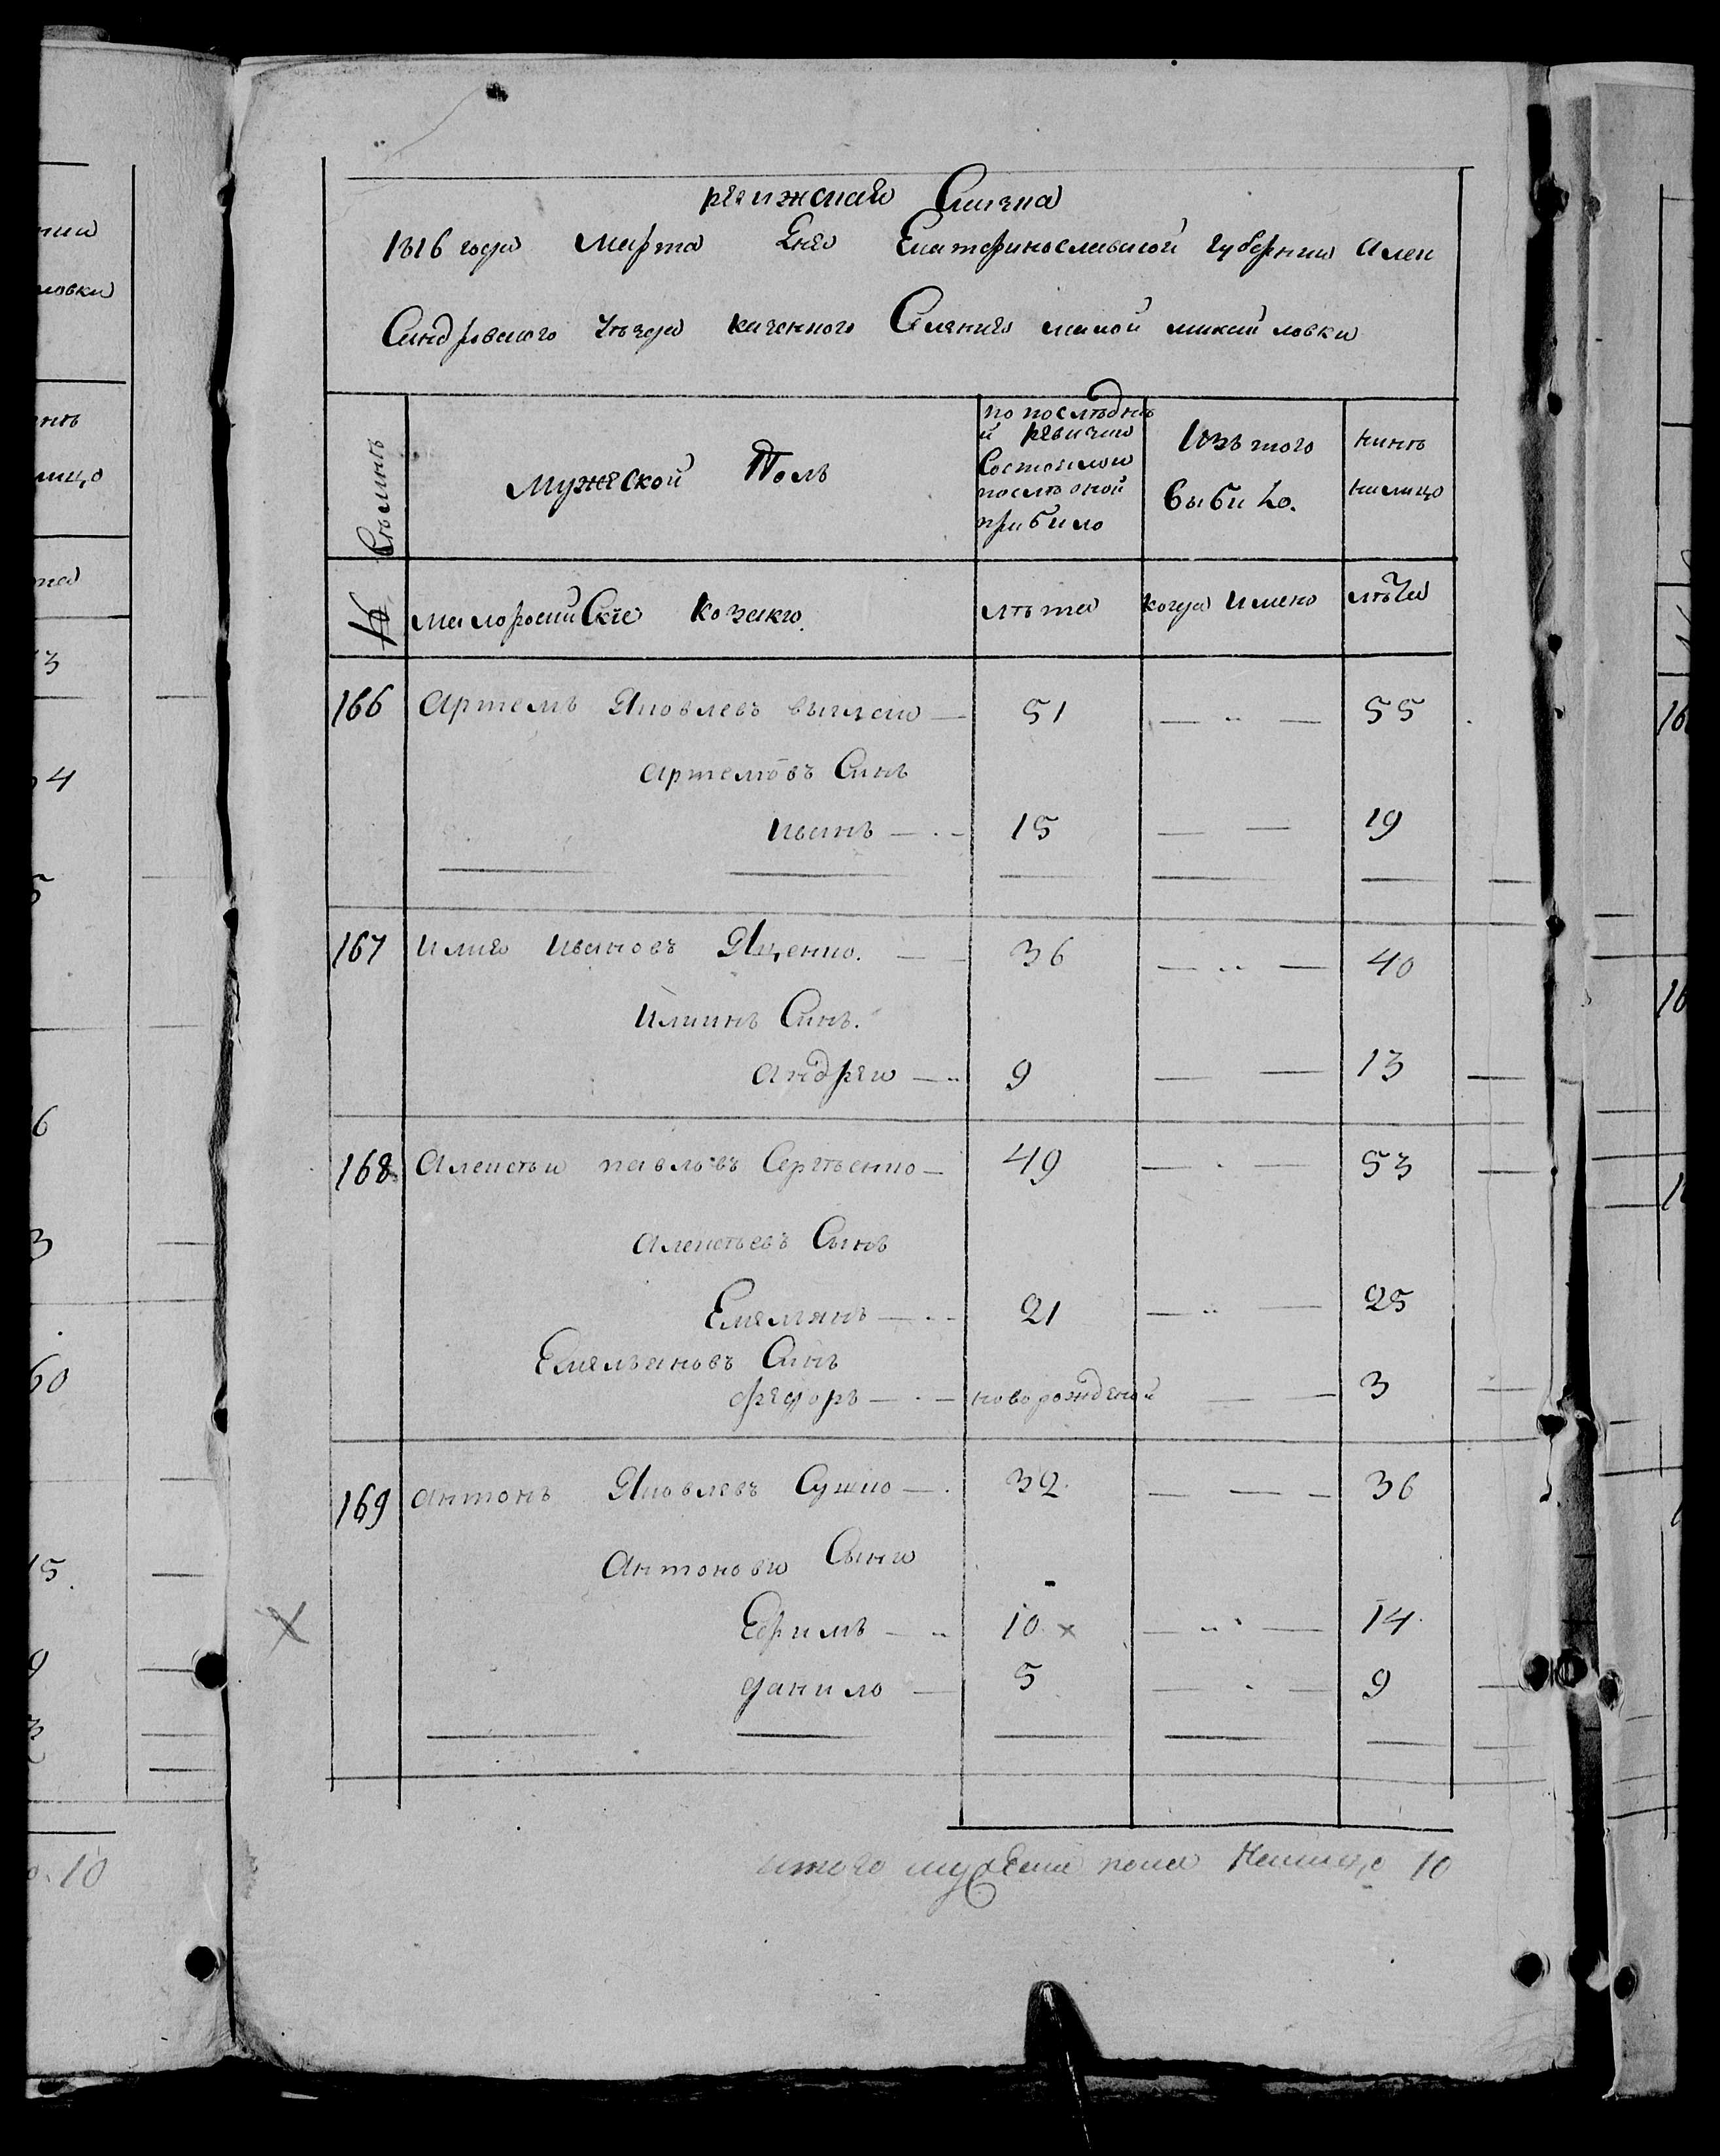 ревижская Сказка
1816 года Марта Дня Екатеринославской губернии Алек
Сандровского Уѣзда казенного Селения малой михайловки
Съмиять
мужеской Полъ
по последнѣ
й ревизию
Состояло и
послѣ оной
прибило
Изъ того
выбило.
нинѣ
налицо
№
малоросийские козаки.
лѣта
когда имено
лѣта
166 Артемъ Яковлевъ 51 — " — 55
Артемовъ Синъ
иванъ — . — 15 — — 19
167 илия ивановъ Яценко. — — 36 — .. — 40
илиинъ Синъ.
андреи — .. 9 — — 13
168 Алексѣи павловъ Сергѣенко — 49 — . — 53
Алексѣевъ Сынъ
Емелянъ — . — 21 — .. — 25
Емельяновъ Синъ
федоръ — . — новорожденой — — 3
169 антонъ Яковлевъ Сушко — . 32. — — — 36
Антонови Сыни
Ефимъ — .. 10. x — .. — 14.
данило — 5 — . — 9
итого муж пола Налицо 10